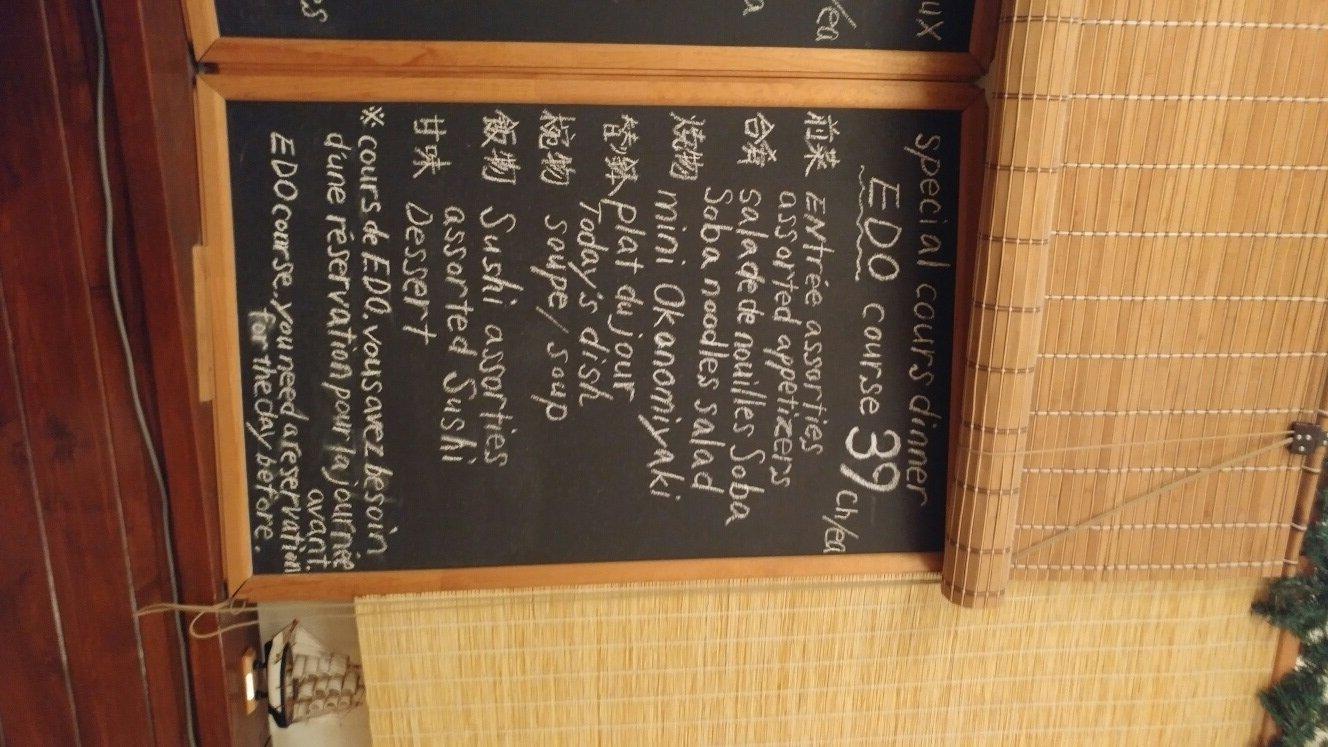 ux
/ea
a
es
special cours dinner
EDO course 39 ch/ea
前菜 ENtrée assorties
assorted appetizers
合肴 salade de nouilles Soba
Soba noodles salad
焼物 mini Okonomiyaki
plat du jour
Today's dish
椀物 soupe/soup
飯物 Sushi assorties
assorted Sushi
甘味 Dessert
※cours de EDO, vous avez besoin
d'une réservation pour la journée
avant.
EDO course, you need a reservation
for the day before.